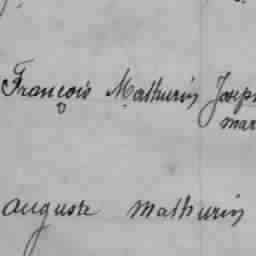 François Mathurin Josep
mar
auguste Mathurin